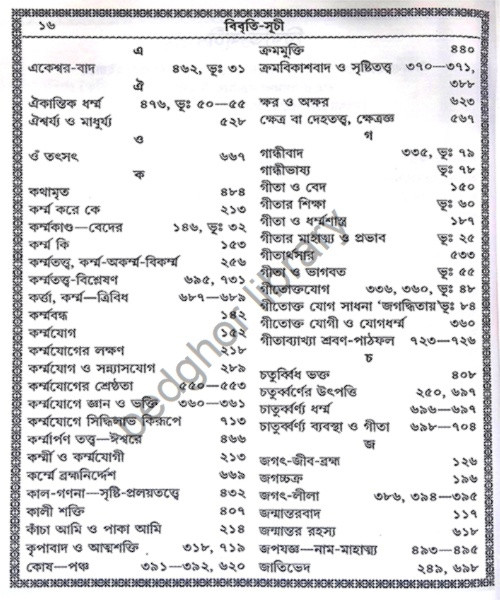 ১৬
বিবৃতি-সূচী
এ
একেশ্বর-বাদ ৪৬২, ভূঃ ৩১
ঐ
ঐকান্তিক ধর্ম্ম ৪৭৬, ভূঃ ৫০—৫৫
ঐশ্বর্য্য ও মাধুর্য্য ৫২৮
ও
ওঁ তৎসৎ ৬৬৭
ক
কথামৃত ৪৮৪
কর্ম্ম করে কে ২১৩
কর্ম্মকাণ্ড—বেদের ১৪৬, ভূঃ ৩২
কর্ম্ম কি ১৫৩
কর্ম্মতত্ত্ব, কর্ম্ম-অকর্ম্ম-বিকর্ম্ম ২৫৬
কর্ম্মতত্ত্ব-বিশ্লেষণ ৬৯৫, ৭৩১
কর্ত্তা, কর্ম্ম—ত্রিবিধ ৬৮৭—৬৮৯
কর্ম্মবন্ধ ১৪২
কর্ম্মযোগ ১৫২
কর্ম্মযোগের লক্ষণ ২১৮
কর্ম্মযোগ ও সন্ন্যাসযোগ ২৮৯
কর্ম্মযোগের শ্রেষ্ঠতা ৫৫০—৫৫৩
কর্ম্মযোগে জ্ঞান ও ভক্তি ৩৬০—৩৬১
কর্ম্মযোগে সিদ্ধিলাভ কিরূপে ৭১৩
কর্ম্মার্পণ তত্ত্ব—ঈশ্বরে ৪৬৬
কর্ম্মী ও কর্ম্মযোগী ২১৩
কর্ম্মে ব্রহ্মনির্দ্দেশ ৬৬৯
কাল-গণনা—সৃষ্টি-প্রলয়তত্ত্বে ৪৩২
কালী শক্তি ৪০৭
কাঁচা আমি ও পাকা আমি ২১৪
কৃপাবাদ ও আত্মশক্তি ৩১৮, ৭১৯
কোষ—পঞ্চ ৩৯১—৩৯২, ৬২০
ক্রমমুক্তি ৪৪০
ক্রমবিকাশবাদ ও সৃষ্টিতত্ত্ব ৩৭০—৩৭১,
৩৮৮
ক্ষর ও অক্ষর ৬২৩
ক্ষেত্র বা দেহতত্ত্ব, ক্ষেত্রজ্ঞ ৫৬৭
গ
গান্ধীবাদ ৩৩৫, ভূঃ ৭৯
গান্ধীভাষ্য ভূঃ ৭৮
গীতা ও বেদ ১৫০
গীতার শিক্ষা ভূঃ ৬০
গীতা ও ধর্ম্মশাস্ত্র ১৮৭
গীতার মাহাত্ম্য ও প্রভাব ভূঃ ২৫
গীতার্থসার ৫৩৩
গীতা ও ভাগবত ভূঃ ৫৫
গীতোক্তযোগ ৩৩৬, ৩৬০, ভূঃ ৪৮
গীতোক্ত যোগ সাধনা ‘জগদ্ধিতায়’ ভূঃ ৮৪
গীতোক্ত যোগী ও যোগধর্ম্ম ৩৬০
গীতাব্যাখ্যা শ্রবণ-পাঠফল ৭২৩—৭২৬
চ
চতুর্ব্বিধ ভক্ত ৪০৮
চাতুর্ব্বর্ণের উৎপত্তি ২৫০, ৬৯৭
চাতুর্ব্বর্ণ্য ধর্ম্ম ৬৯৬—৬৯৭
চাতুর্ব্বর্ণ্য ব্যবস্থা ও গীতা ৬৯৮—৭০৪
জ
জগৎ-জীব-ব্রহ্ম ১২৬
জগচ্চক্র ১৯৬
জগৎ-লীলা ৩৮৬, ৩৯৪—৩৯৫
জন্মান্তরবাদ ১১৭
জন্মান্তর রহস্য ৬১৮
জপযজ্ঞ—নাম-মাহাত্ম্য ৪৯৩—৪৯৫
জাতিভেদ ২৪৯, ৬৯৮
bedghor library